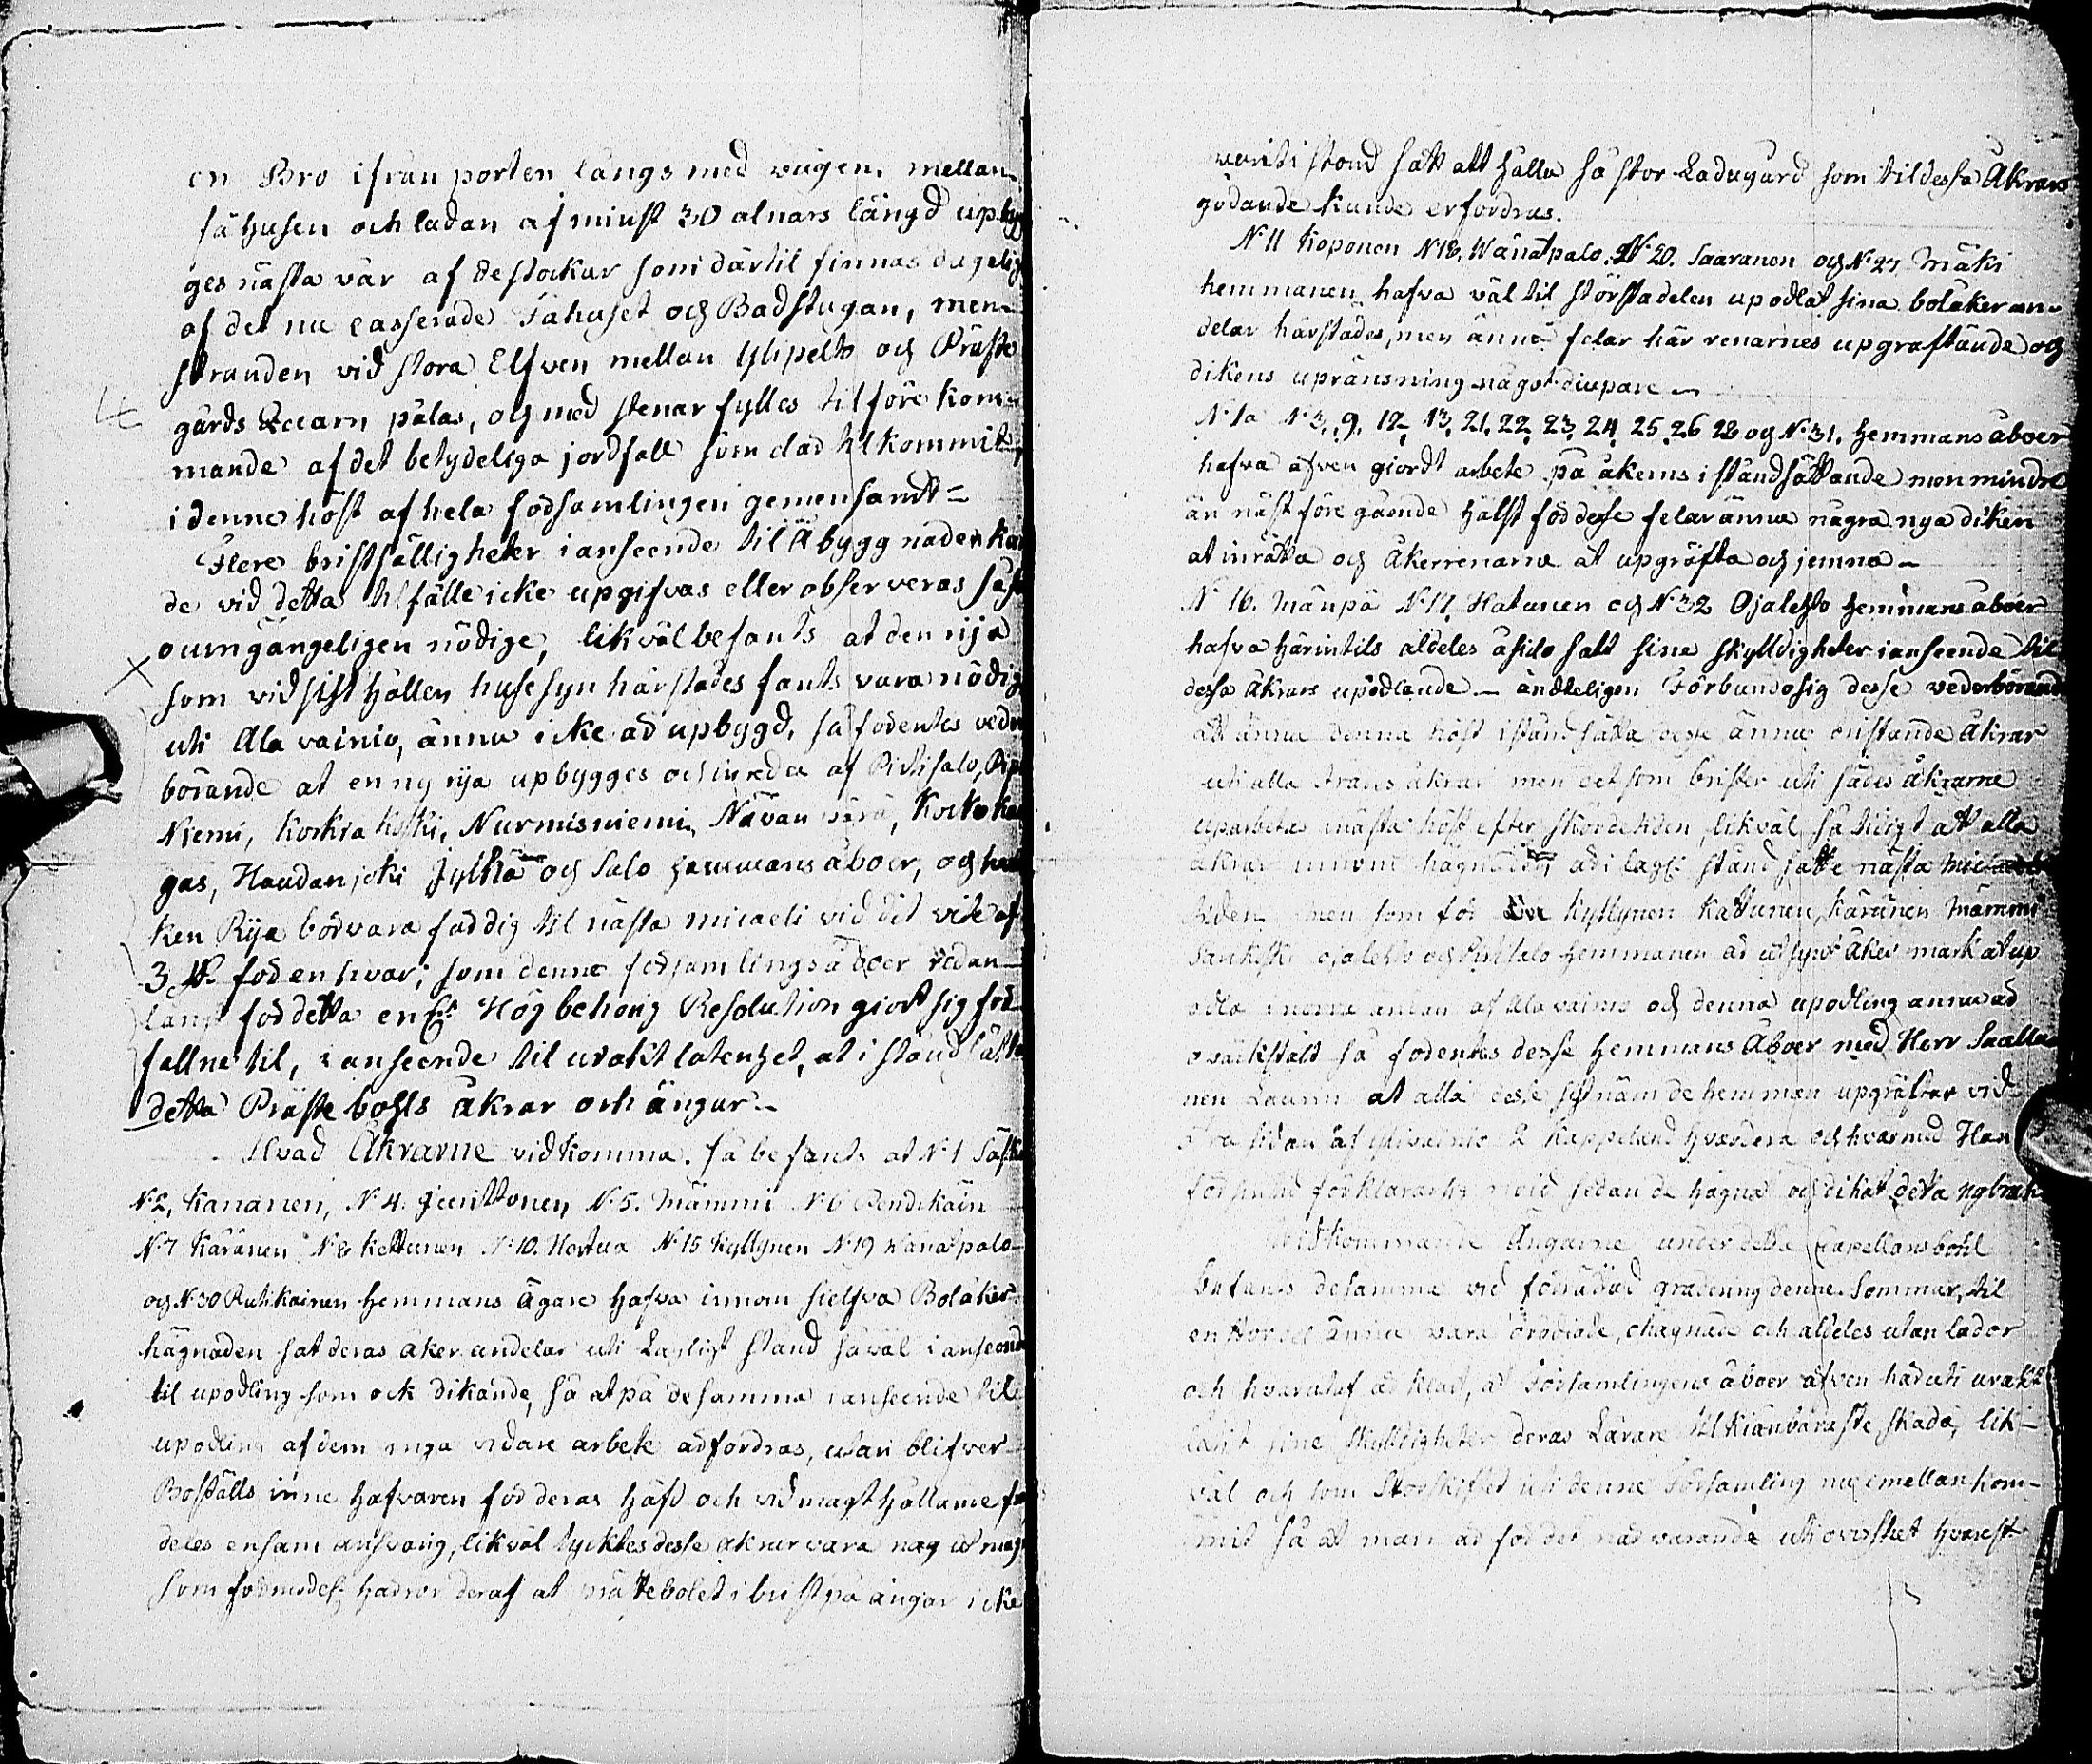 en Bro ifrån porten längs med vägen mellan
fähusen och ladan af minst 30 alnars längd upbyg
ges nästa vår af de stockar som därtil finnas dugelig
af det nu casserade Fähuset och Badstugan, men
stranden vid stora Elfven mellan Ylipelto och Präste
gårds Qvarn pålas, och med stenar fylles til före kom-
mande af det betydeliga jordfall som där tilkommit
i denne höst af hela församlingen gemensamt =
Flere bristfälligheter i anseende til Åbyggnaden kun
de vid detta tilfälle icke upgifvas eller observeras såsom
oumgängeligen nödige, likväl befants at den rija
som vid sist hållen husesyn härstädes fants vara nödig
uti Ala vainio, ännu icke är upbygd, så fodentes veder
börande at en ny rija upbygges och inredes af Pirtisalo,
Niemi, Korkia koski, Nurmisniemi, Nävän perä, Korko kan
gas, Haudan joki Jylhä och Salo hemmans åboer, och hvil
ken Rija bör vara färdig til nästa micaeli vid vite af
3 för en hvar; som denne församlings åboer redan
långt för detta en Hög behörig Resolution giort sig för
fallne til, i anseende til uraktlåtenhet, at i stånd sätta
detta Präste bohls åkrar och ängar.
Hvad Åkrarne vidkomma, så befants at N:1 Säsk
N:2, Kananen, N:4. Junttonen, N:5. Mämmi N:6 Pendikäin
N:7 Käränen N:8 Kettunen N:10. Hertua N:15 Kyllynen N:19 Wänätpalo
och N:30 Rutikainen Hemmans Ägare hafva innom sielfva Bolåker
hägnaden sat deras åker andelar uti Lagligt stånd såväl i anseende
til upodling som ock dikande, så at på desamma i anseende til
upodling af dem inga vidare arbete ärfordras, utan blifver
Boställs inne hafvaren för deras häfd och vidmagt hållanne
deles ensam ansvarig, likväl tycktes desse åkrar vara nog ut magr
som förmodel. härrör deraf at prästebolet i brist på ängar icke
varit i stånd satt att hålla så stor Ladugård som til dessa Åkrars
gödande kunde erfordras.
N:11 Koponen N:18. Wänätpalo. N:20. Saaranen och N:27 Mäki
hemmanen hafva väl til största delen upodlat sina bolåker an-
delar härstädes, men ännu felar här renarnes upgräftande och
dikens uprånsning något diupare –
N:1a N:3, 9, 12, 13, 21, 22, 23, 24, 25, 26 28 och N:31. Hemmans åboer
hafva äfven giordt arbete på åkerns i ståndsättande men mindre
än näst föregående hälst för desse felar ännu några nya diken
at inrätta och Åkerrenarna at upgräfta och jemna –
N:16. Mänpä N:17 Hatunen och N:32 Ojalehto Hemmans åboer
hafva härintils aldeles åsido satt sine skylldigheter i anseende til
dessa åkrars upodlande – ändteligen Förbundo sig desse vederbörande
att ännu denna höst iståndsätta desse ännu bristande Åkrar
uti alla träns åkrar men det som brister uti sädes åkrarne
uparbetas nästa höst efter skördetiden, likväl så tidigt att alla
åkrar innom hägnaden är i lagl: stånd satte nästa micaeli
tiden men som för Kyllynen Kettunen, Käränen Mämmi
ojalehto och Pirtisalo Hemmanen är utsynt Åker mark at up
odla innom andan af Ala vainio och denna upodling ännu är
overkstäld så fodentes desse Hemmans Åboer med Herr
nen Launn at alla desse sistnämde hemman upgräftar vid
sidan af Ylivainio 2 Kappeland hvardera och hvarmed Han
förklarade nöid sedan de hägna och dikat deta nybruk
Vidkommande Ängarne under detta Capellansbohl
Befants desamma vid förrättad gradering denne Sommar, til
en stor del ännu vara oröjdade, ohägnade och aldeles utan lador
och hvarutaf är klart, at Församlingens åboer äfven häruti urakt
låtit sine skylldigheter deras Lärare til kiänbaraste skada, lik-
väl och som Storskiftet uti denne Församling nu emellan kom-
mit så at man är för det närvarande uti ovisshet hvarest